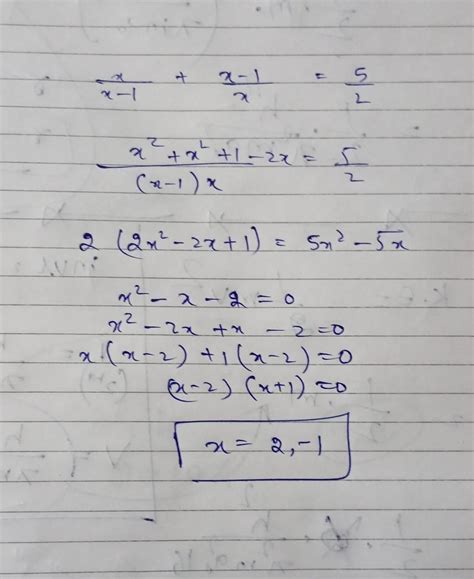 x/(x-1) + (x-1)/x = 5/2
(x² + x² + 1 - 2x)/((x-1)x) = 5/2
2 (2x² - 2x + 1) = 5x² - 5x
x² - x - 2 = 0
x² - 2x + x - 2 = 0
x (x-2) + 1 (x-2) = 0
(x-2) (x+1) = 0
x = 2, -1